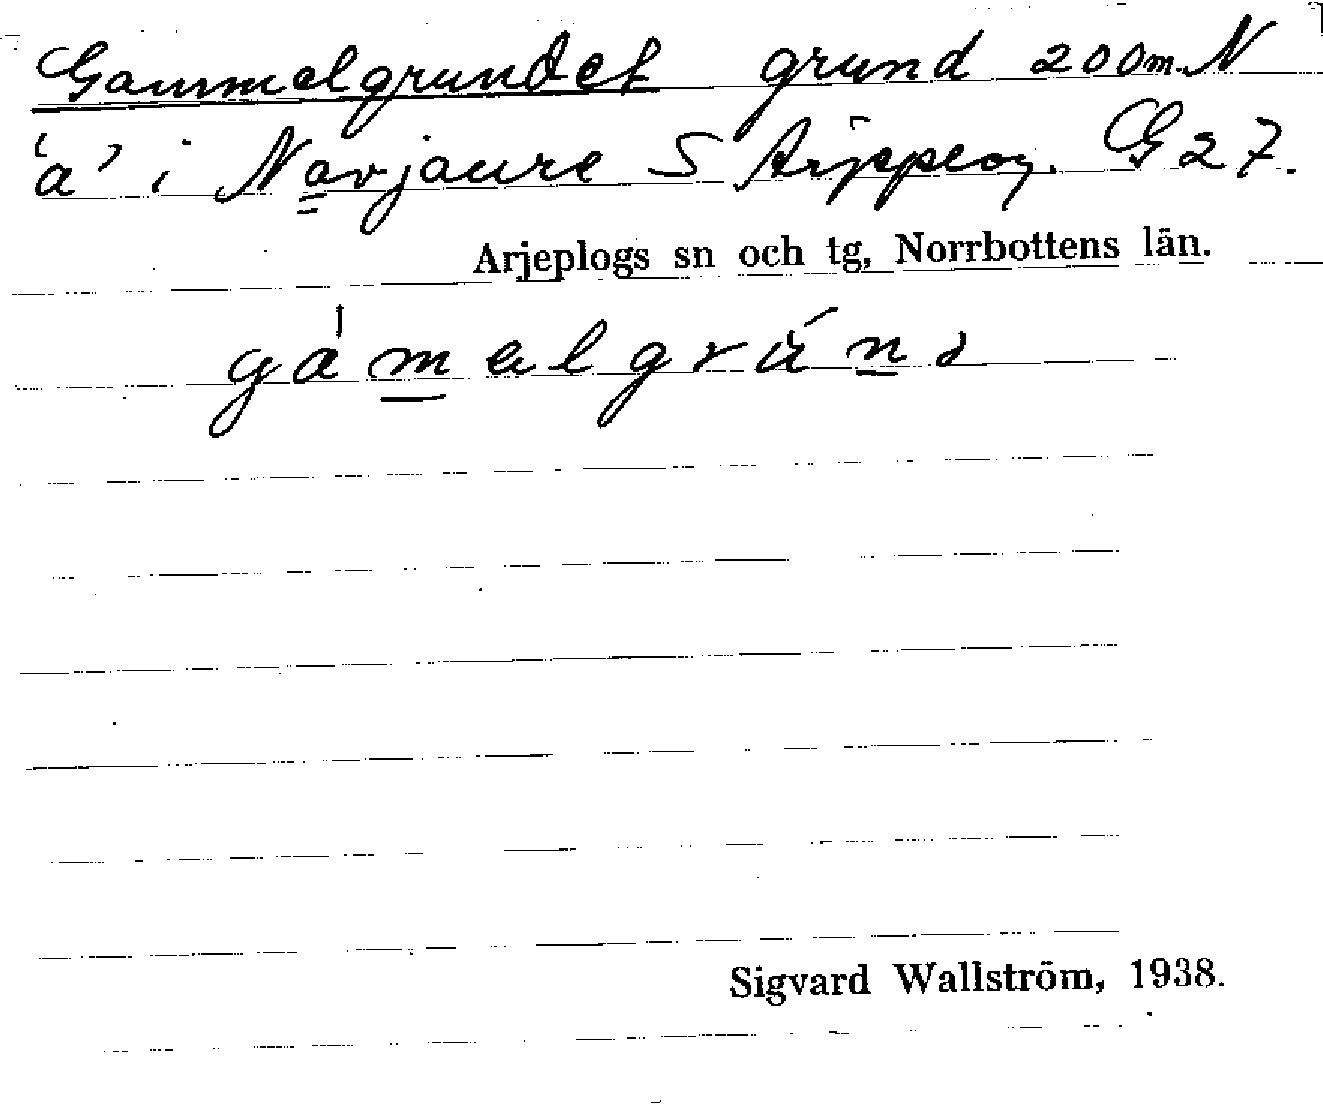 Gammelgrundet grund 200m. N
'a' i Navjaure S Arjeplog. G27.
Arjeplogs sn och tg, Norrbottens län.
gámelgrúnd
Sigvard Wallström, 1938.